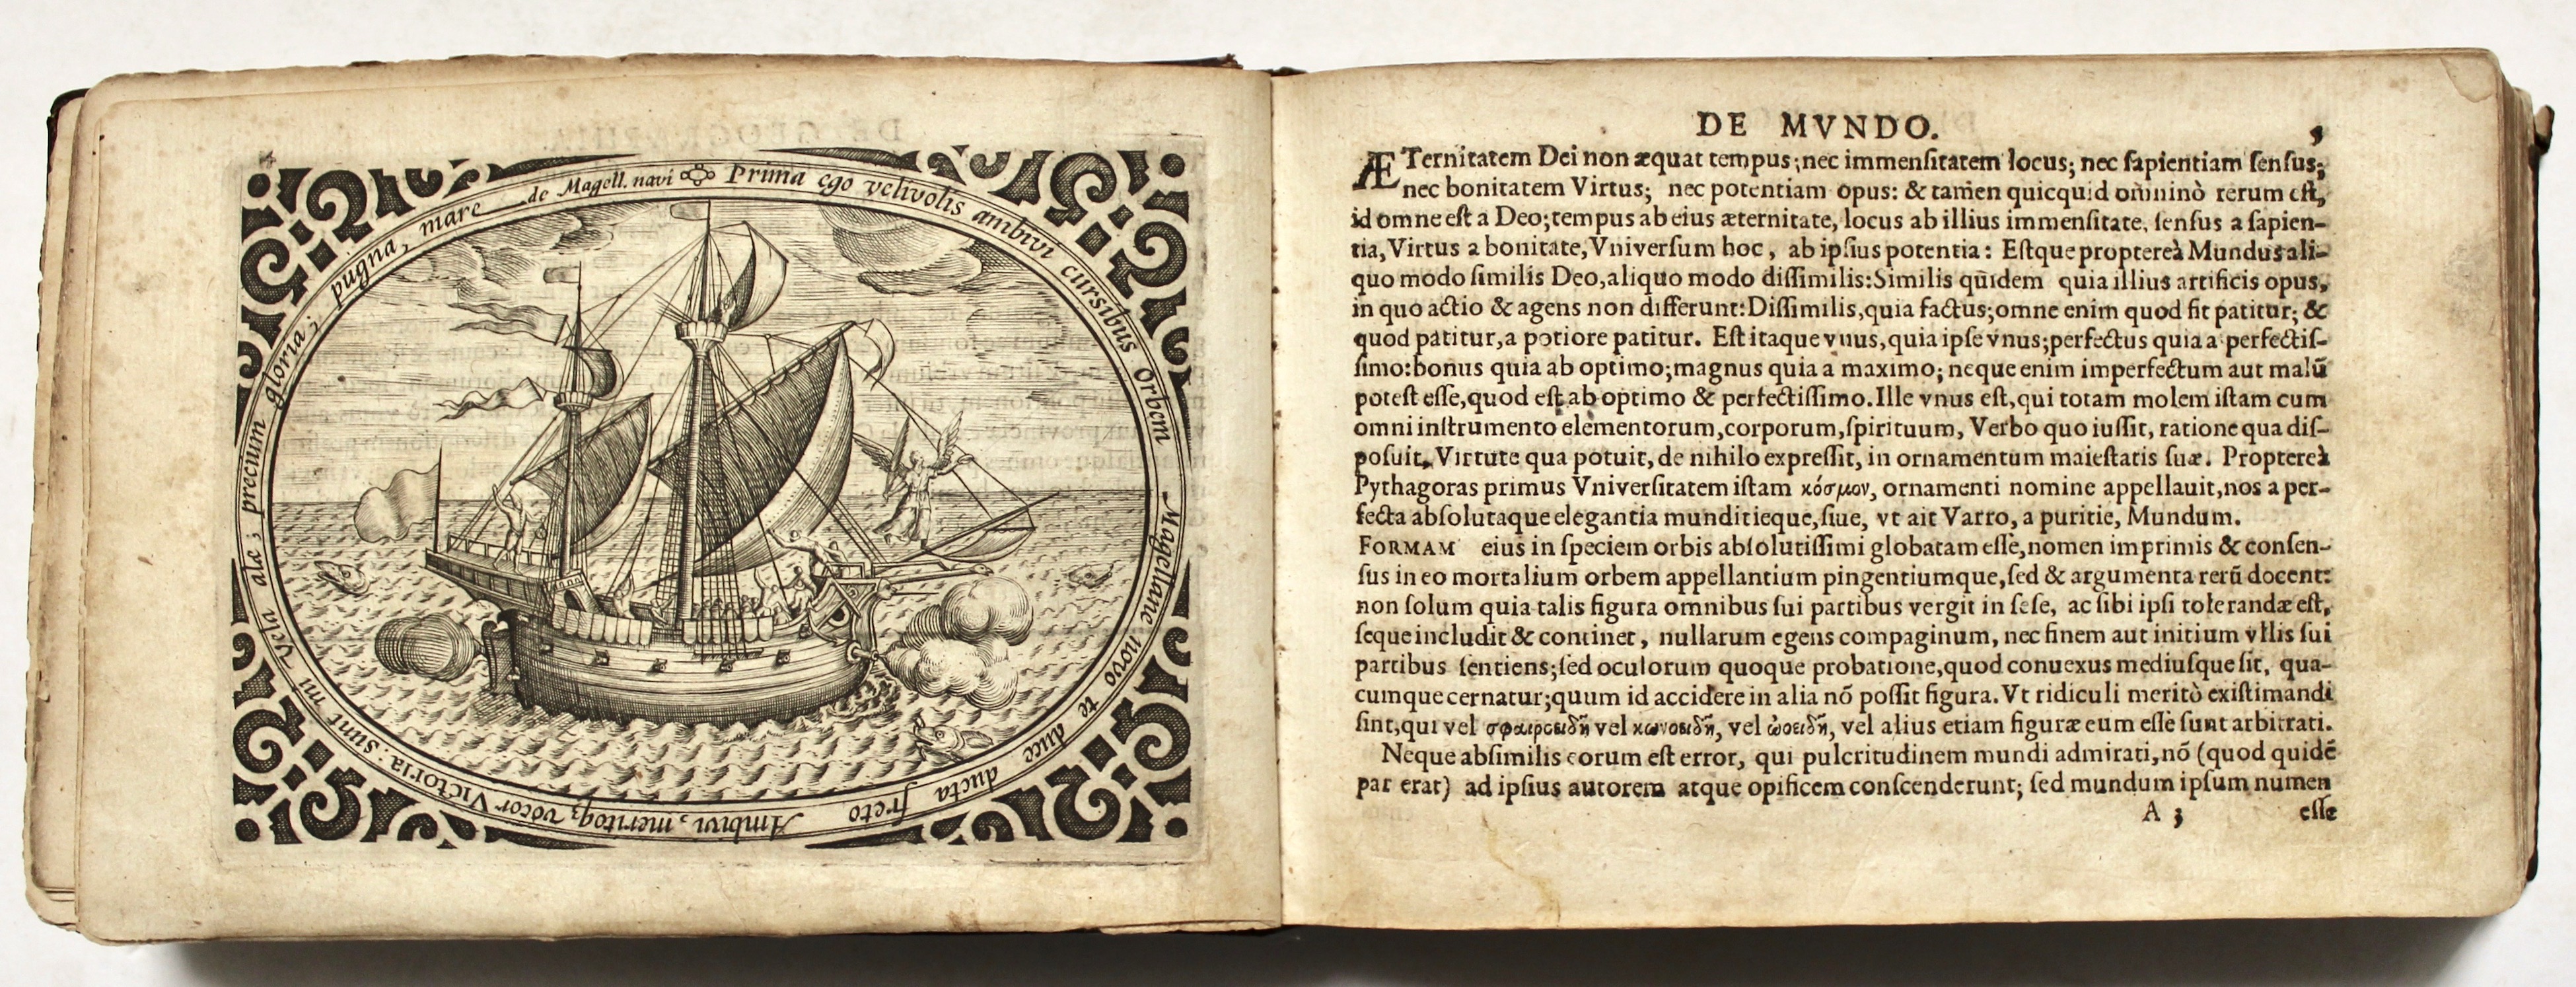 de Magell. navi
Prima ego velivolis ambivi cursibus Orbem
Magellane novo te duce ducta freto
Ambivi, meritoq₃ vocor Victoria: sunt mi
Vela alæ; precium gloria; pugna, mare
DE MVNDO. 3
ÆTernitatem Dei non æquat tempus; nec immensitatem locus; nec sapientiam sensus;
nec bonitatem Virtus; nec potentiam opus: & tamen quicquid omninò rerum est,
id omne est a Deo; tempus ab eius æternitate, locus ab illius immensitate, sensus a sapien-
tia, Virtus a bonitate, Vniversum hoc, ab ipsius potentia: Estque proptereà Mundus ali-
quo modo similis Deo, aliquo modo dissimilis: Similis quidem quia illius artificis opus,
in quo actio & agens non differunt: Dissimilis, quia factus; omne enim quod fit patitur; &
quod patitur, a potiore patitur. Est itaque vnus, quia ipse vnus; perfectus quia a perfectis-
simo: bonus quia ab optimo; magnus quia a maximo; neque enim imperfectum aut malū
potest esse, quod est ab optimo & perfectissimo. Ille vnus est, qui totam molem istam cum
omni instrumento elementorum, corporum, spirituum, Verbo quo iussit, ratione qua dis-
posuit, Virtute qua potuit, de nihilo expressit, in ornamentum maiestatis suæ. Proptereà
Pythagoras primus Vniversitatem istam κόσμον, ornamenti nomine appellauit, nos a per-
fecta absolutaque elegantia munditieque, siue, vt ait Varro, a puritie, Mundum.
FORMAM eius in speciem orbis absolutissimi globatam esse, nomen imprimis & consen-
sus in eo mortalium orbem appellantium pingentiumque, sed & argumenta rerū docent:
non solum quia talis figura omnibus sui partibus vergit in sese, ac sibi ipsi tolerandæ est,
seque includit & continet, nullarum egens compaginum, nec finem aut initium vllis sui
partibus sentiens; sed oculorum quoque probatione, quod conuexus mediusque sit, qua-
cumque cernatur; quum id accidere in alia nō possit figura. Vt ridiculi meritò existimandi
sint, qui vel σφαιροειδῆ vel κωνοειδῆ, vel ὠοειδῆ, vel alius etiam figuræ eum esse sunt arbitrati.
Neque absimilis eorum est error, qui pulcritudinem mundi admirati, nō (quod quidē
par erat) ad ipsius autorem atque opificem conscenderunt; sed mundum ipsum numen
A 3 esse